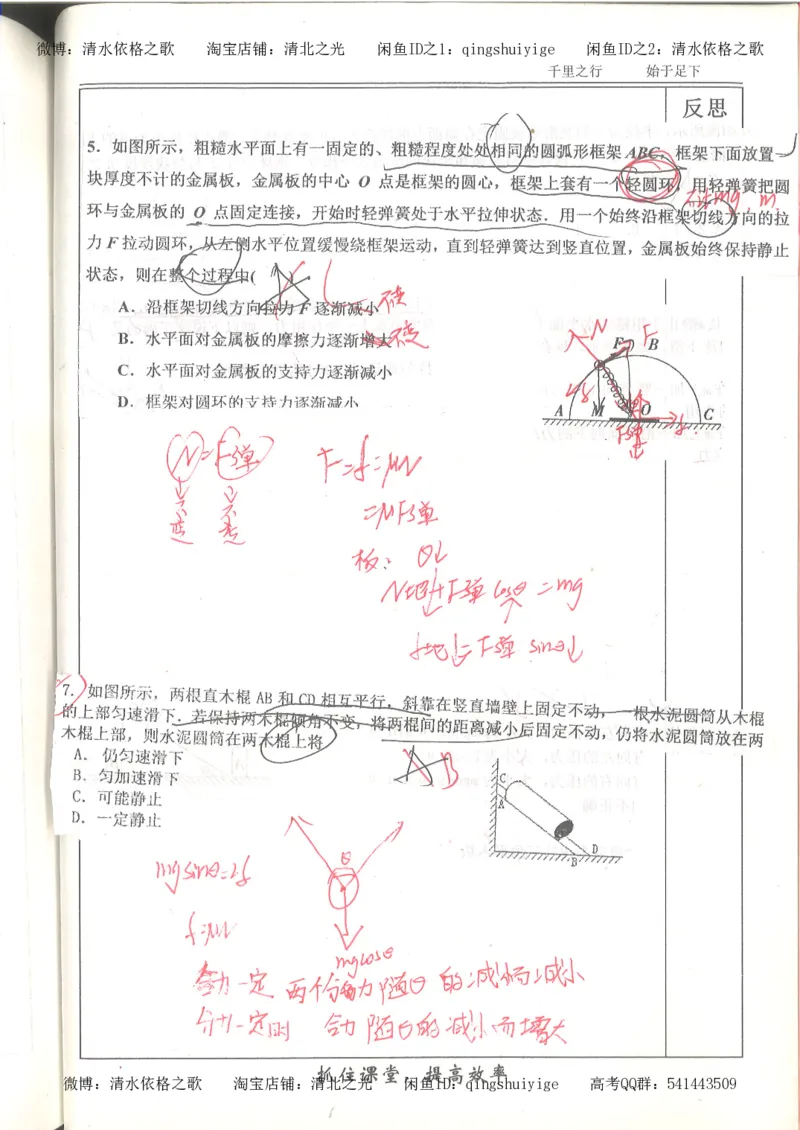 微博：清水依格之歌 淘宝店铺：清北之光 闲鱼ID之1：qingshuiyige 闲鱼ID之2：清水依格之歌
千里之行 始于足下
反思
5. 如图所示，粗糙水平面上有一固定的、粗糙程度处处相同的圆弧形框架 ABC，框架下面放置一
块厚度不计的金属板，金属板的中心 O 点是框架的圆心，框架上套有一个轻圆环，用轻弹簧把圆
环与金属板的 O 点固定连接，开始时轻弹簧处于水平拉伸状态．用一个始终沿框架切线方向的拉
mg, m
力 F 拉动圆环，从左侧水平位置缓慢绕框架运动，直到轻弹簧达到竖直位置，金属板始终保持静止
状态，则在整个过程中( )
A．沿框架切线方向拉力 F 逐渐减小
B．水平面对金属板的摩擦力逐渐增大
C．水平面对金属板的支持力逐渐减小
D．框架对圆环的支持力逐渐减小
N F
F B
A M O C
F弹 f
N=F弹 F=f=μN
不变 不变
=μF弹
板： θ↓
N地+F弹 cosθ =mg
f地=F弹 sinθ↓
7. 如图所示，两根直木棍 AB 和 CD 相互平行，斜靠在竖直墙壁上固定不动，一根水泥圆筒从木棍
的上部匀速滑下．若保持两木棍倾角不变，将两棍间的距离减小后固定不动，仍将水泥圆筒放在两
木棍上部，则水泥圆筒在两木棍上将
A．仍匀速滑下
B．匀加速滑下
C．可能静止
D．一定静止
B
C
A
D
B
θ
mgsinθ=2f
f=μN
mgcosθ
合力一定 两个分力随θ的减小而减小
分力一定时 合力随θ的减小而增大
抓住课堂，提高效率
微博：清水依格之歌 淘宝店铺：清北之光 闲鱼ID：qingshuiyige 高考QQ群：541443509